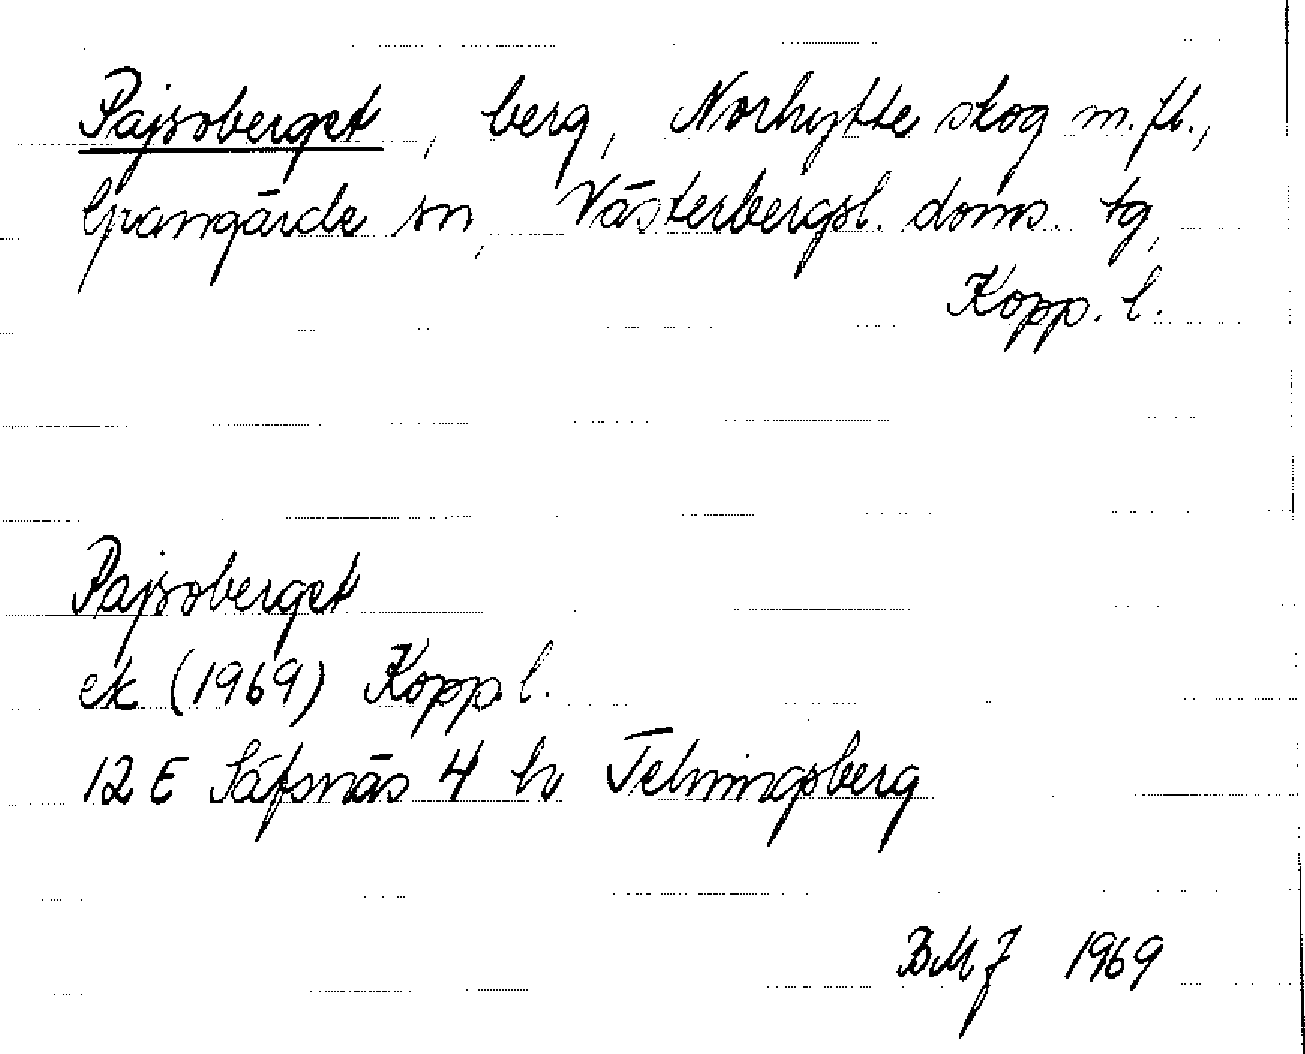 Pajsoberget, berg, Norhytte skog m.fl.,
Grangärde sn, Västerbergsl. doms. tg,
Kopp. l.
Pajsoberget
ek (1969) Kopp l.
12 E Säfsnäs 4 h Telningsberg
BMJ 1969